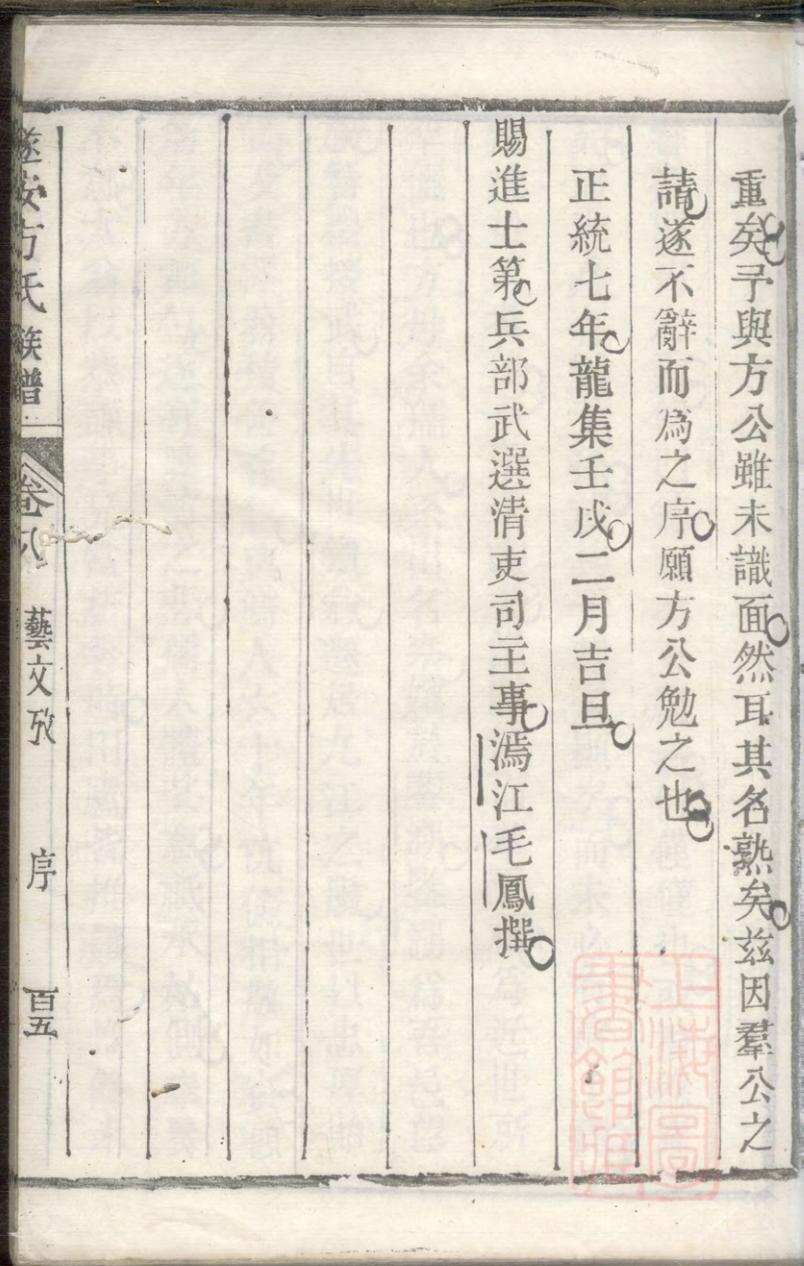 重矣予與方公雖未識面然耳其名熟矣茲因羣公之
請遂不辭而爲之序願方公勉之也
正統七年龍集壬戌二月吉旦
賜進士第兵部武選清吏司主事潙江毛鳳撰
遂安方氏族譜 卷八 藝文攷 序 百五
上海圖
書館藏